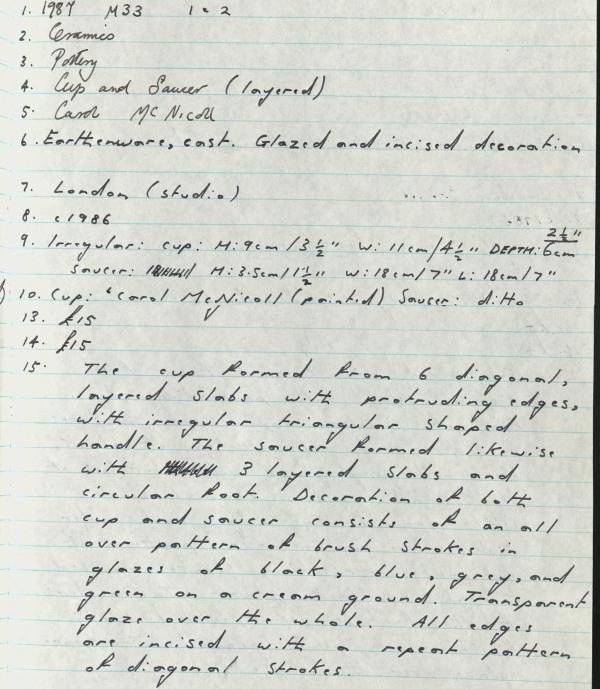 1. 1987 M33 1 & 2
2. Ceramics
3. Pottery
4. Cup and Saucer (layered)
5. Carol McNicoll
6. Earthenware, cast. Glazed and incised decoration
7. London (studio)
8. c1986
2½"
9. Irregular: cup: H: 9cm/3½" W: 11cm/4½" DEPTH: 6cm
saucer: H: 3.5cm/1½" W: 18cm/7" L: 18cm/7"
10. Cup: "Carol McNicoll (painted) Saucer: ditto
13. £15
14. £15
15. The cup formed from 6 diagonal,
layered slabs with protruding edges,
with irregular triangular shaped
handle. The saucer formed likewise
with 3 layered slabs and
circular foot. Decoration of both
cup and saucer consists of an all
over pattern of brush strokes in
glazes of black, blue, grey, and
green on a cream ground. Transparent
glaze over the whole. All edges
are incised with a repeat pattern
of diagonal strokes.